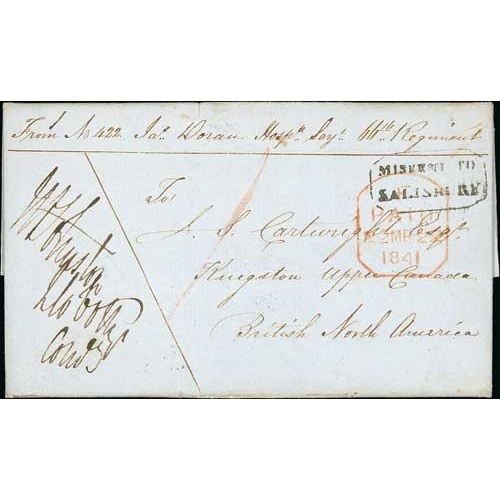 From No 422 Jas Doran Hospl Serjt 66th Regiment
MISSENT TO
SALISBURY
To
J. S. Cartwright Esqr
PAID
22 MR 22
1841
Kingston Upper Canada
British North America